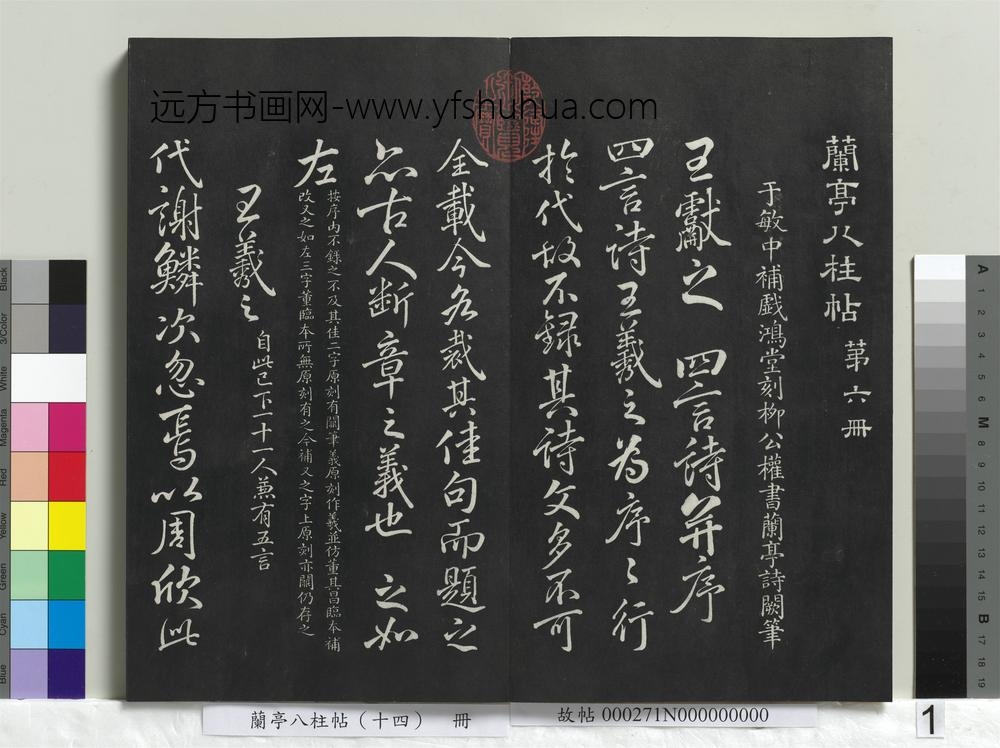 蘭亭八柱帖 苐六冊
于敏中補戲鴻堂刻柳公權書蘭亭詩闕筆
王獻之 四言詩并序
四言詩王羲之為序序行
於代故不録其詩文多不可
全載今各裁其佳句而題之
亦古人斷章之義也 之如
左
按序内不録之不及其佳二字原刻有闕筆義原刻作羲並仿董其昌臨本補
改又之如左三字董臨本所無原刻有之今補又之字上原刻亦闕仍存之
王羲之 自此已下一十一人兼有五言
代謝鱗次忽焉以周欣此
远方书画网-www.yfshuhua.com
蘭亭八柱帖（十四） 冊
故帖 000271N000000000
1
Black
3/Color
White
Magenta
Red
Yellow
Green
Cyan
Blue
A 1 2 3 4 5 6 M 8 9 10 11 12 13 14 15 B 17 18 19